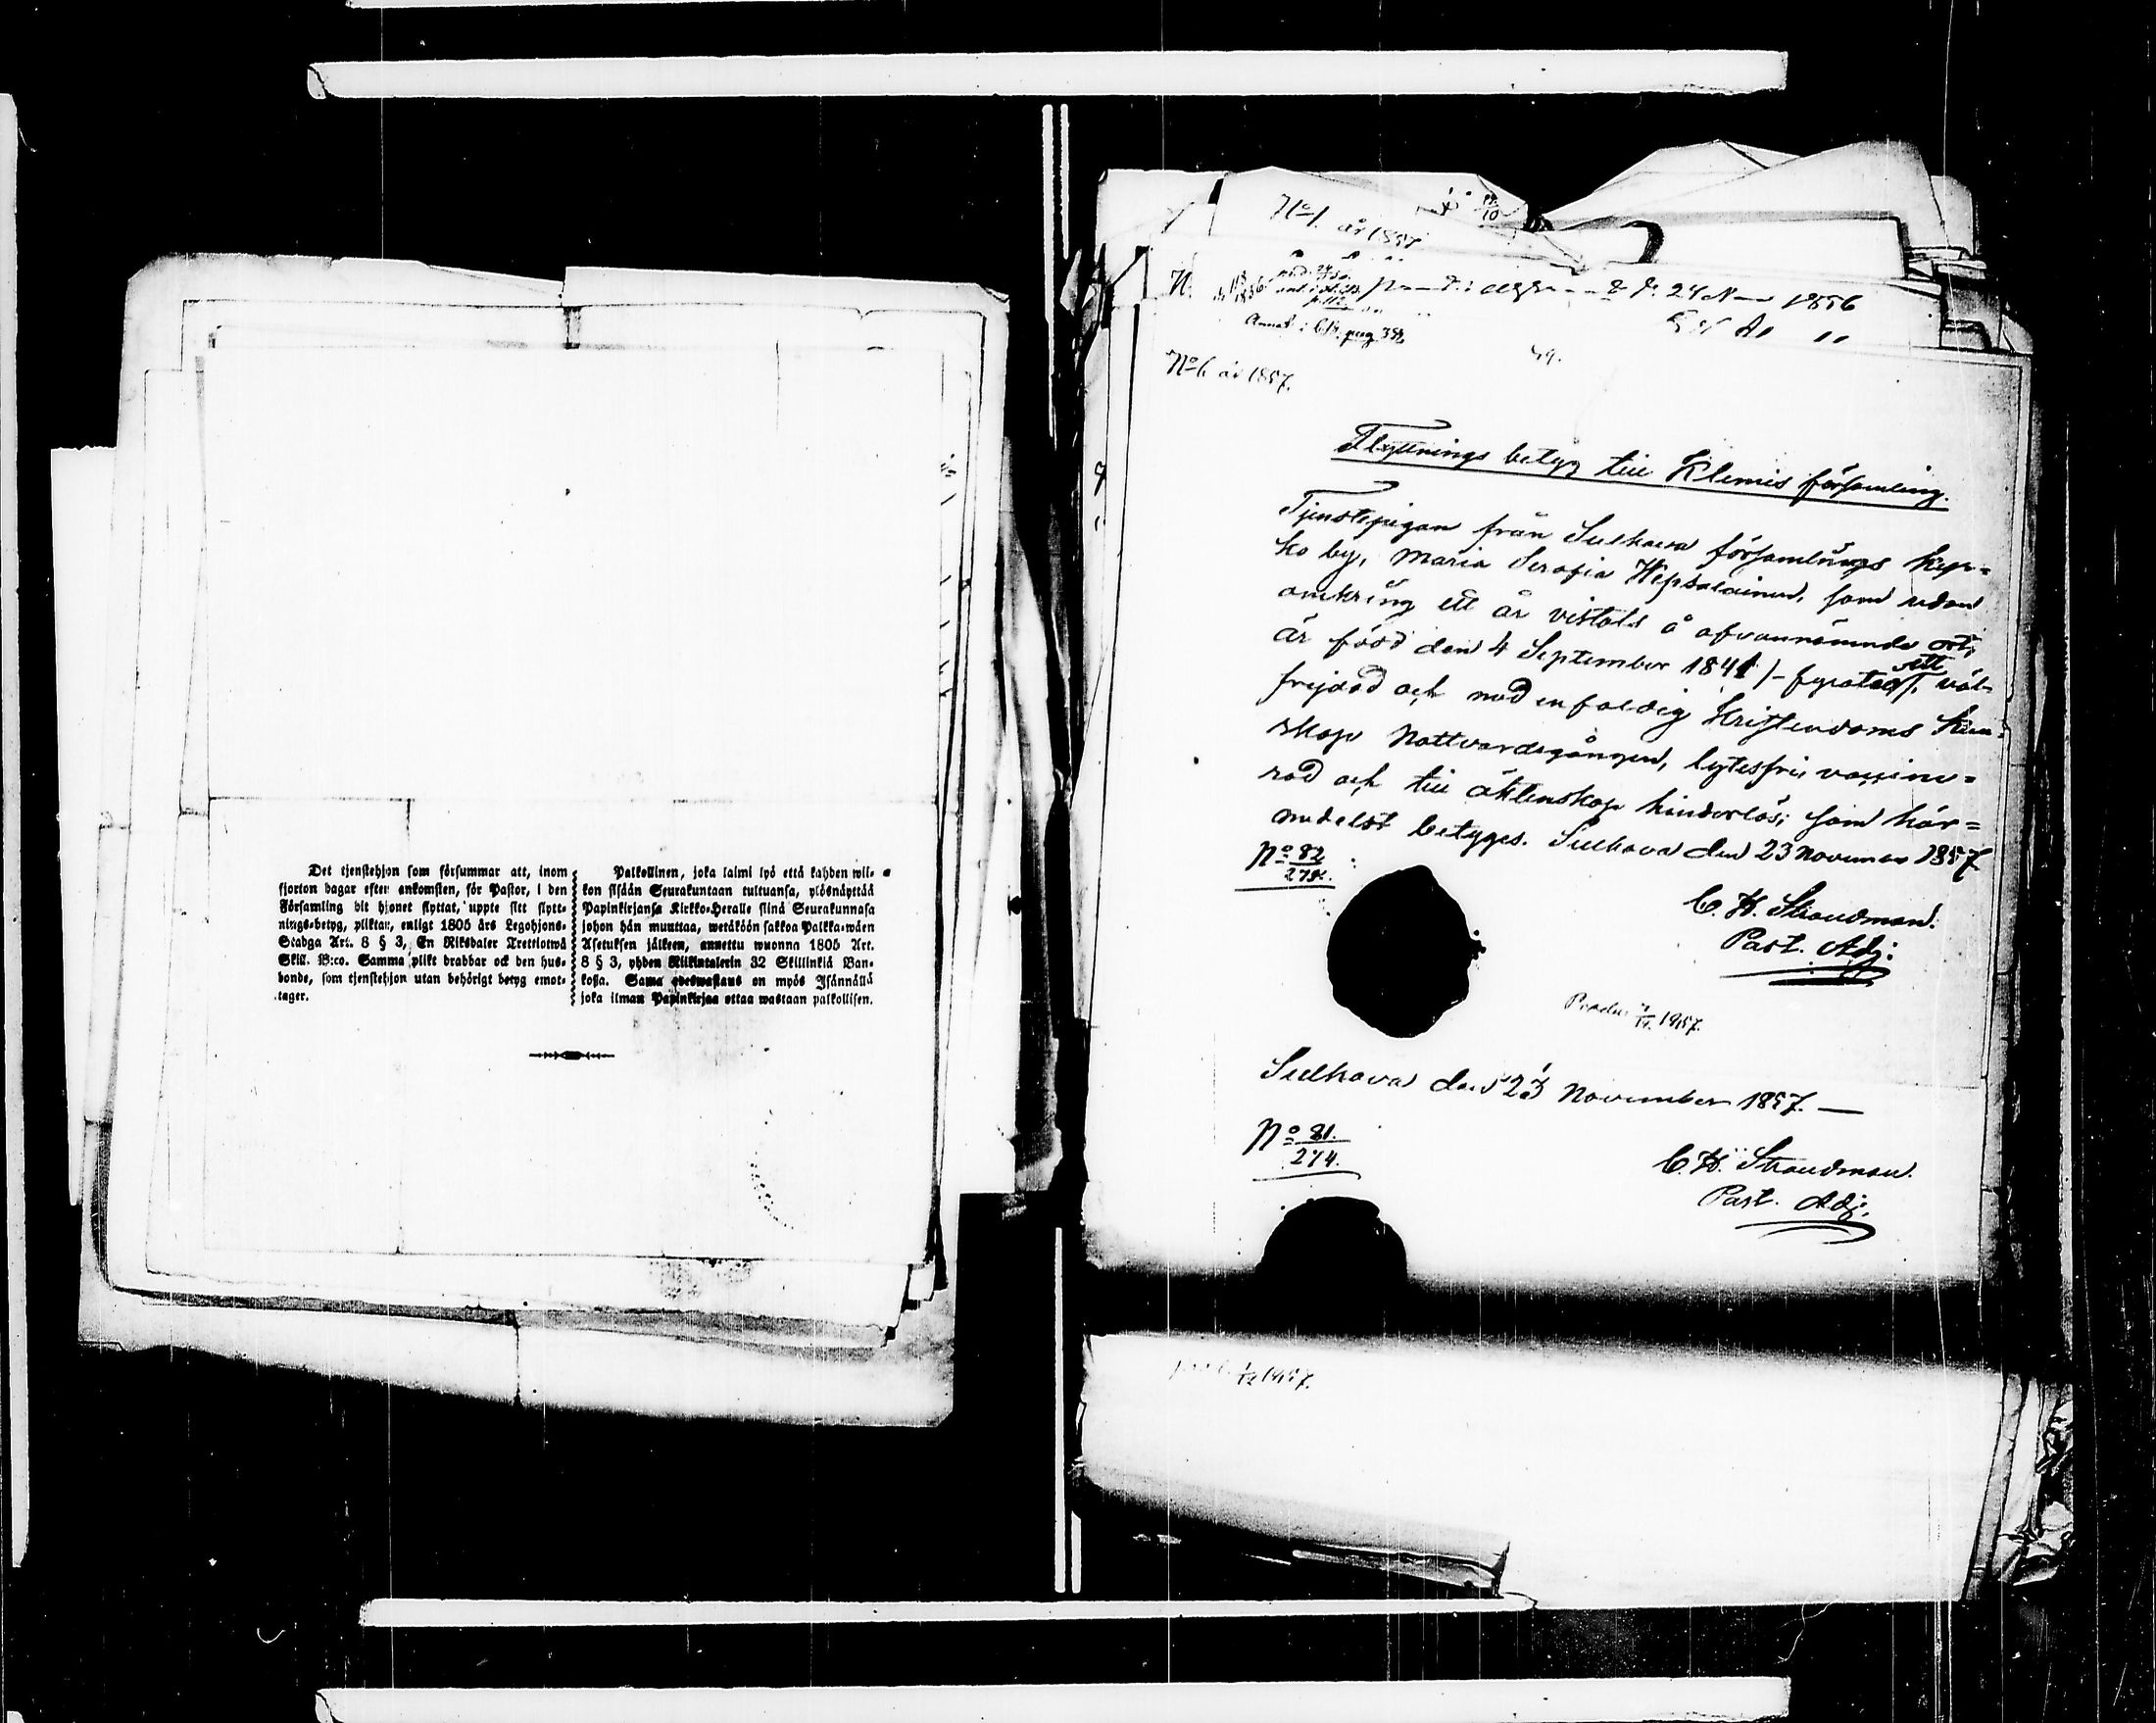 Det tjenstehjon som försummar att, inom
fjorton dagar efter ankomsten, för Pastor, i den
Församling dit hjonet flyttat, uppte sitt flytt-
nings-betyg, pliktar, enligt 1805 års Legohjons-
Stadga Art. 8 § 3, En Riksdaler Trettiotwå
Skill. B:co. Samma plikt drabbar ock den hus-
bonde, som tjenstehjon utan behörigt betyg emot-
tager.
Palkollinen, joka laimi lyö että kahden wii-
kon sisään Seurakuntaan tultuansa, ylösnäyttää
Papinkirjansa Kirkko-Heralle siinä Seurakunnasa
johon hän muuttaa, wetäköön sakkoa Palkka-wäen
Asetuksen jälkeen, annettu wuonna 1805 Art.
8 § 3, yhden Riikintalerin 32 Skillinkiä Ban-
kossa. Sama edeswastaus on myös Isännällä
joka ilman Papinkirjaa ottaa wastaan palkollisen.
No 1. år 1857
24 1856
Annot. i C.B. pag 382
49.
No 6 år 1857.
Flyttnings betyg till Klemis församling.
Tjenstepigan från Sulkava församlings Kup-
ko by, Maria Serafia Hepsalainen, som sedan
omkring ett år vistats å ofvannämnde ort,
är född den 4 September 1841 /-fyratioett/, väl-
frejdad och med enfaldig Kristendoms kun-
skap Nattvardsgången, lytesfri, vaccine-
rad och till äktenskap hinderlös; som här-
medelst betyges. Sulkava den 23 November 1857.
No 82
274.
C. H. Strandman.
Past. Adj:
1857.
Sulkava den 23 November 1857. —
No 81.
274.
C. H. Strandman.
Past. Adj.
1857.